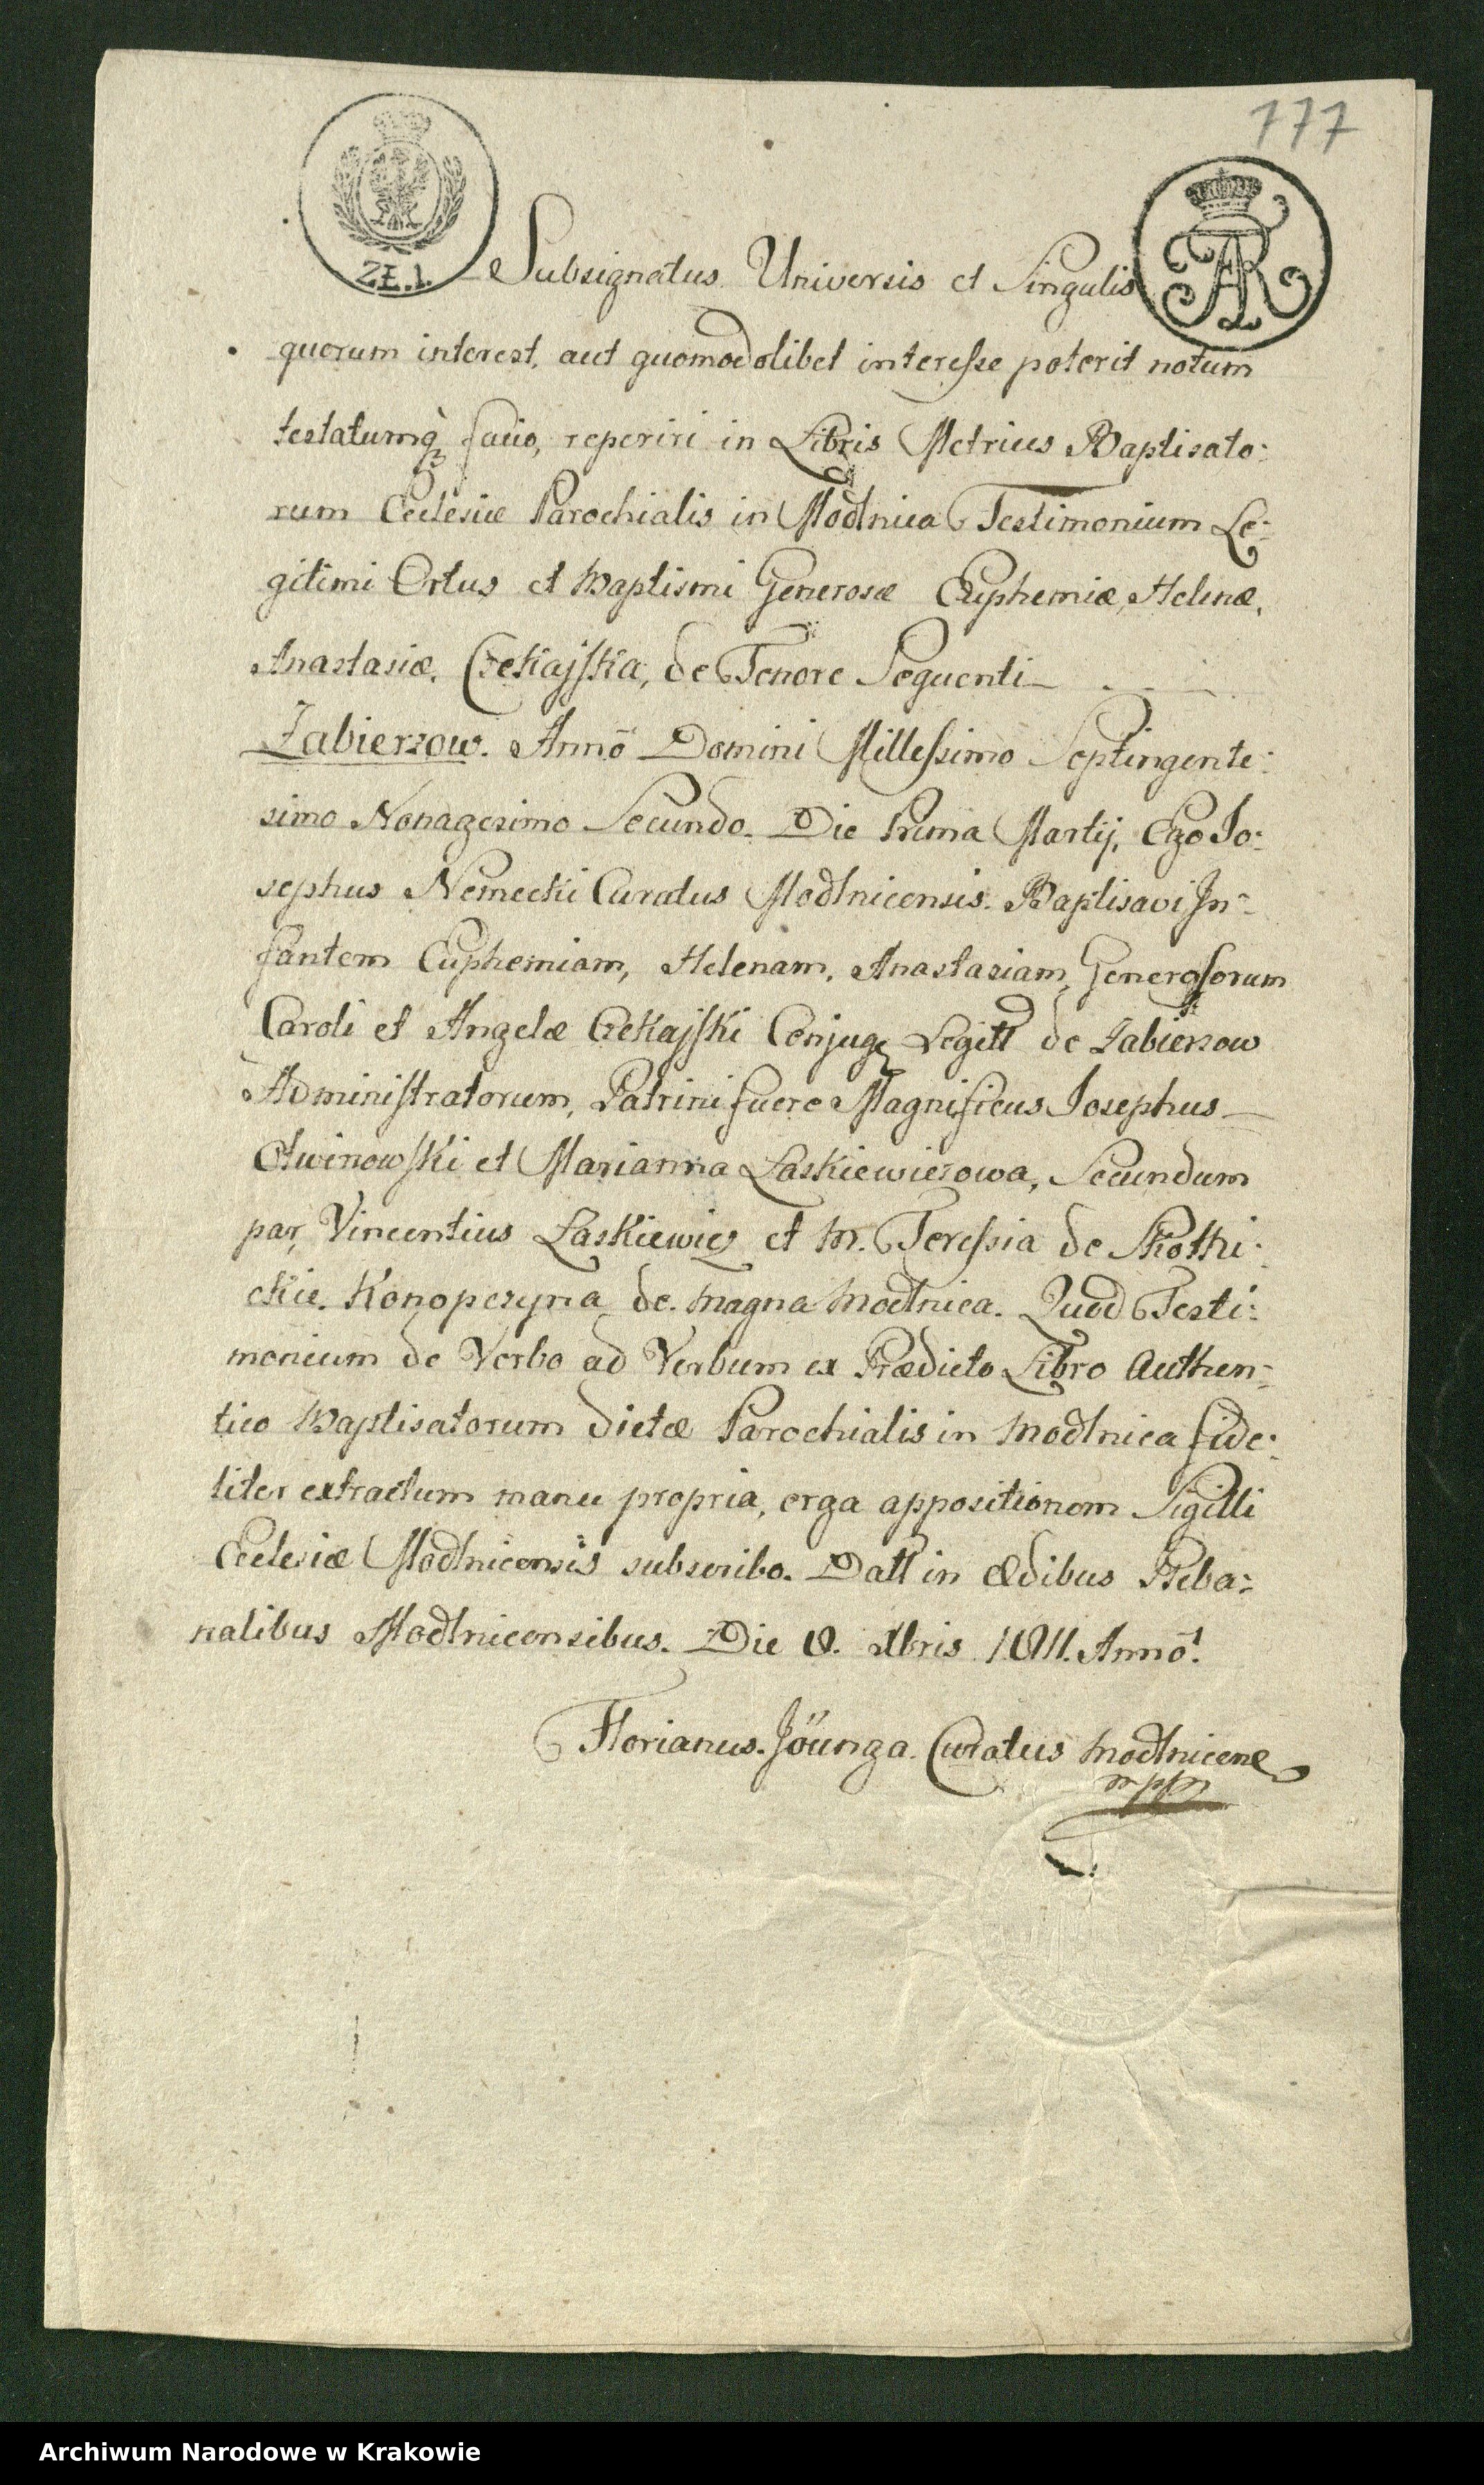 777
ZŁ.1.
Subsignatus Universis et Singulis
quorum interest, aut quomodolibet interesse poterit notum
testatumq̀ facio, reperiri in Libris Metrices Baptisato:
rum Ecclesiæ Parochialis in Modlnica Testimonium Le:
gitimi Ortus et Baptismi Generosæ Euphemiæ, Helenæ,
Anastasiæ, Czekajska, de Tenore Sequenti _
Zabierzow. Annõ Domini Millessimo Septingente:
simo Nonagesimo Secundo. Die Prima Martij, Ego Jo:
sephus Nemecki Curatus Modlnicensis. Baptisavi In:
fantem Euphemiam, Helenam, Anastasiam, Generosorum
Caroli et Angelæ Czekajski Conjug Legitt de Zabierzow
Administratorum, Patrini fuere Magnificus Josephus _
Otwinowski et Marianna Laskiewiczowa, Secundum
par, Vincentius Laskiewicz et M. Teressia de Skotni:
ckie. Konopczyna de. Magna Modlnica. Quod Testi:
monium de Verbo ad Verbum ex Prædicto Libro Authen:
tico Baptisatorum dictæ Parochialis in Modlnica fide:
liter extractum manu propria, erga appositionem Sigilli
Ecclesiæ Modlnicensis subscribo. Datt in Ædibus Pleba:
nalibus Modlnicensibus. Die 8. Xbris 1811. Annõ.
Florianus. Jöunga. Curatus Modlnicens
mpp
Archiwum Narodowe w Krakowie